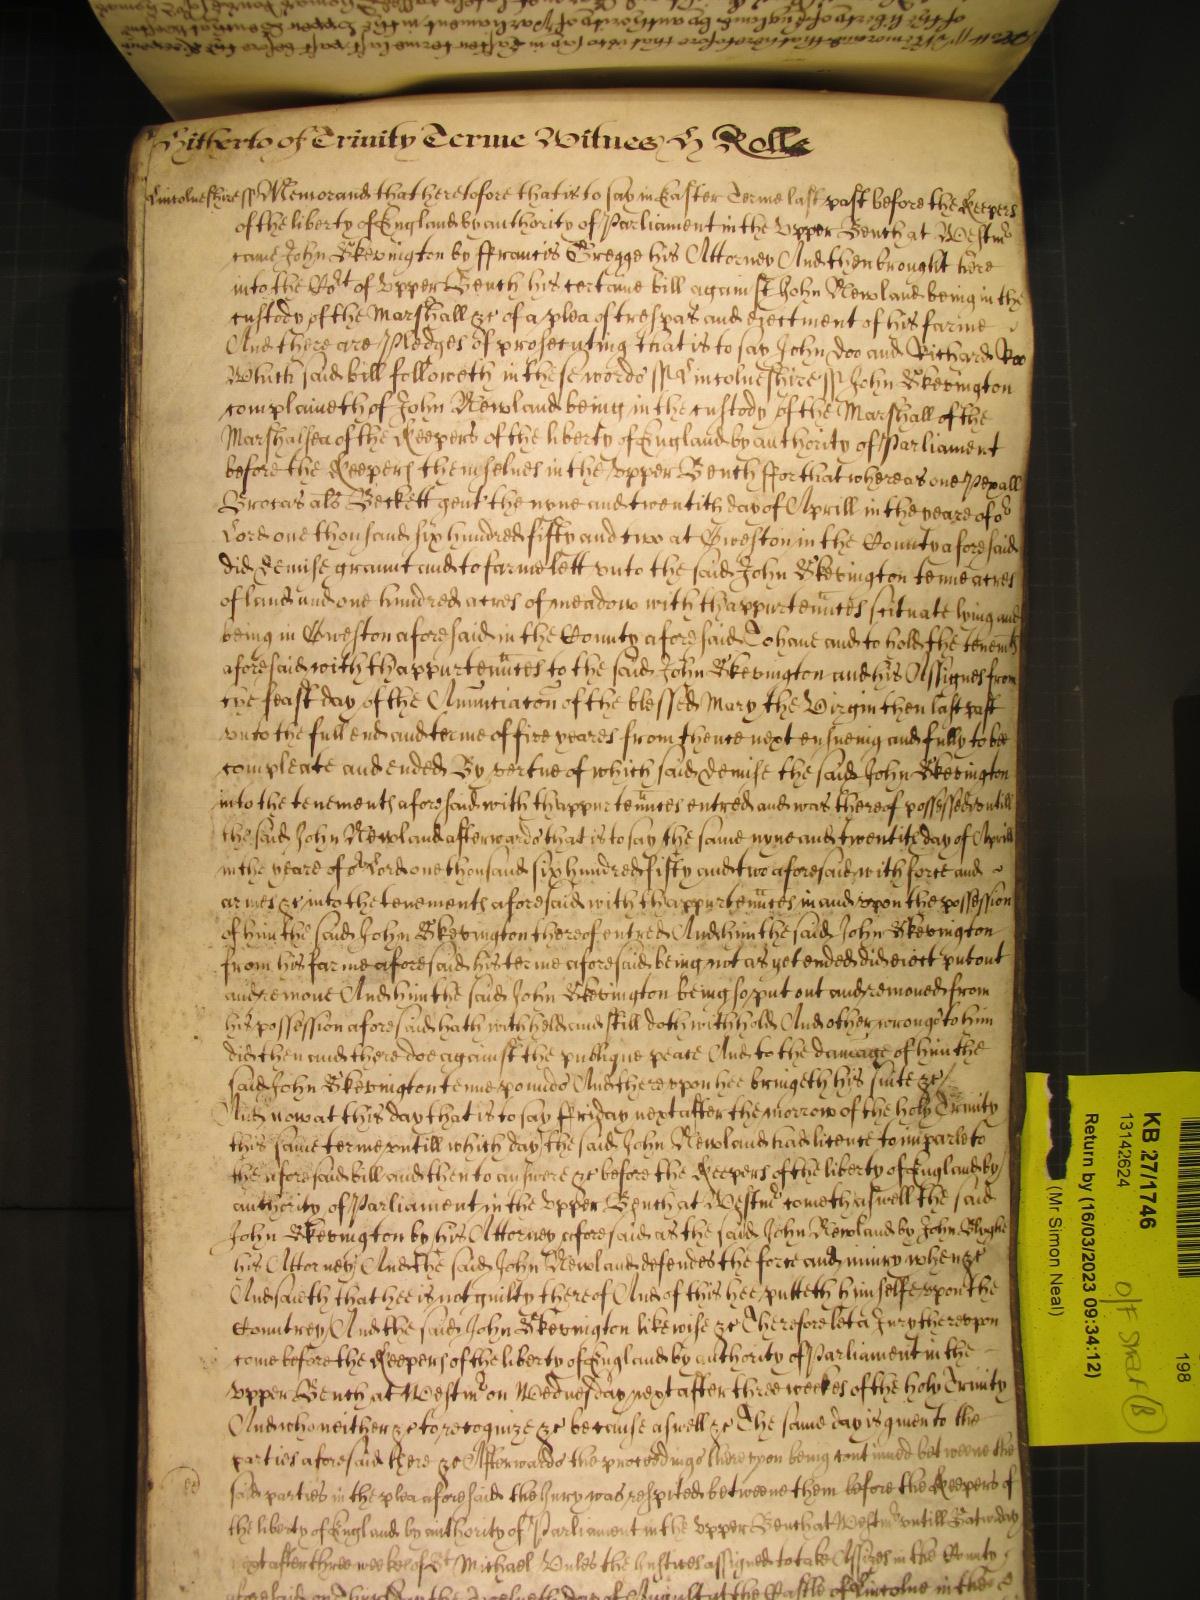 Hitherto of Trinity Terme Witnes H Rolle
Lincolneshire ss Memorand that heretofore that is to say in Easter Terme last past before the Keepers
of the liberty of England by authority of Parliament in the Upper Bench at Westmr
came John Skevington by Ffrancis Gregge his Attorney And then brought here
into the Cort of Upper Bench his certaine bill against John Newland being in the
custody of the Marshall &c of a plea of trespas and ejectment of his farme
And there are Pledges of prosecuting that is to say John Doo and Richard Roo
Which said bill followeth in these words ss Lincolneshire ss John Skevington
complaineth of John Newland being in the custody of the Marshall of the
Marshalsea of the Keepers of the liberty of England by authority of Parliament
before the Keepers themselves in the Upper Bench Ffor that whereas one Pexall
Brocas als Beckett gent the nyne and twentith day of Aprill in the yeare of or
Lord one thousand six hundred fifty and two at Gweston in the County aforesaid
did demise graunt and to farme lett unto the said John Skevington tenne acres
of land and one hundred acres of meadow with thappurtennces scituate lying and
being in Gweston aforesaid in the County aforesaid To have and to hold the tenemts
aforesaid with thappurtennces to the said John Skevington and his Assignes from
the feast day of the Annunciacon of the blessed Mary the Virgin then last past
unto the full end and terme of five yeares from thence next ensueing and fully to bee
compleate and ended By vertue of which said demise the said John Skevington
into the tenements aforesaid with thappurtennces entred and was thereof possessed untill
the said John Newland afterwards that is to say the same nyne and twentith day of Aprill
in the yeare of or Lord one thousand six hundred fifty and two aforesaid with force and
armes &c into the tenements aforesaid with thappurtennces in and upon the possession
of him the said John Skevington thereof entred And him the said John Skevington
from his farme aforesaid his terme aforesaid being not as yet ended did eject put out
and remove And him the said John Skevington being so put out and removed from
his possession aforesaid hath withheld and still doth withhold And other wrongs to him
did then and there doe against the publique peace And to the damage of him the
said John Skevington tenne pounds And thereupon hee bringeth his suite &c
And now at this day that is to say Ffriday next after the morrow of the holy Trinity
this same terme untill which day the said John Newland had licence to imparle to
the aforesaid bill and then to answere &c before the Keepers of the liberty of England by
authority of Parliament in the Upper Bench at Westmr cometh aswell the said
John Skevington by his Attorney aforesaid as the said John Newland by John Blythe
his Attorney And the said John Newland defendes the force and injury when &c
And saieth that hee is not guilty thereof And of this hee putteth himselfe upon the
Countrey And the said John Skevington likewise &c Therefore let a Jury thereupon
come before the Keepers of the liberty of England by authority of Parliament in the
Upper Bench at Westmr on Wednesday next after three weekes of the holy Trinity
And who neither &c to recognize &c because aswell &c The same day is given to the
parties aforesaid there &c Afterwards the proceedings thereupon being continued betweene the
said parties in the plea aforesaid the Jury was respited betweene them before the Keepers of
the liberty of England by authority of Parliament in the Upper Bench at Westmr untill Saturday
next after three weekes of St Michael Unles the Justices assigned to take Assizes in the County
aforesaid on day the twelveth day of August at the Castle of Lincolne in the
KB 27/1746
13142624
Return by (16/03/2023 09:34:12)
(Mr Simon Neal)
198